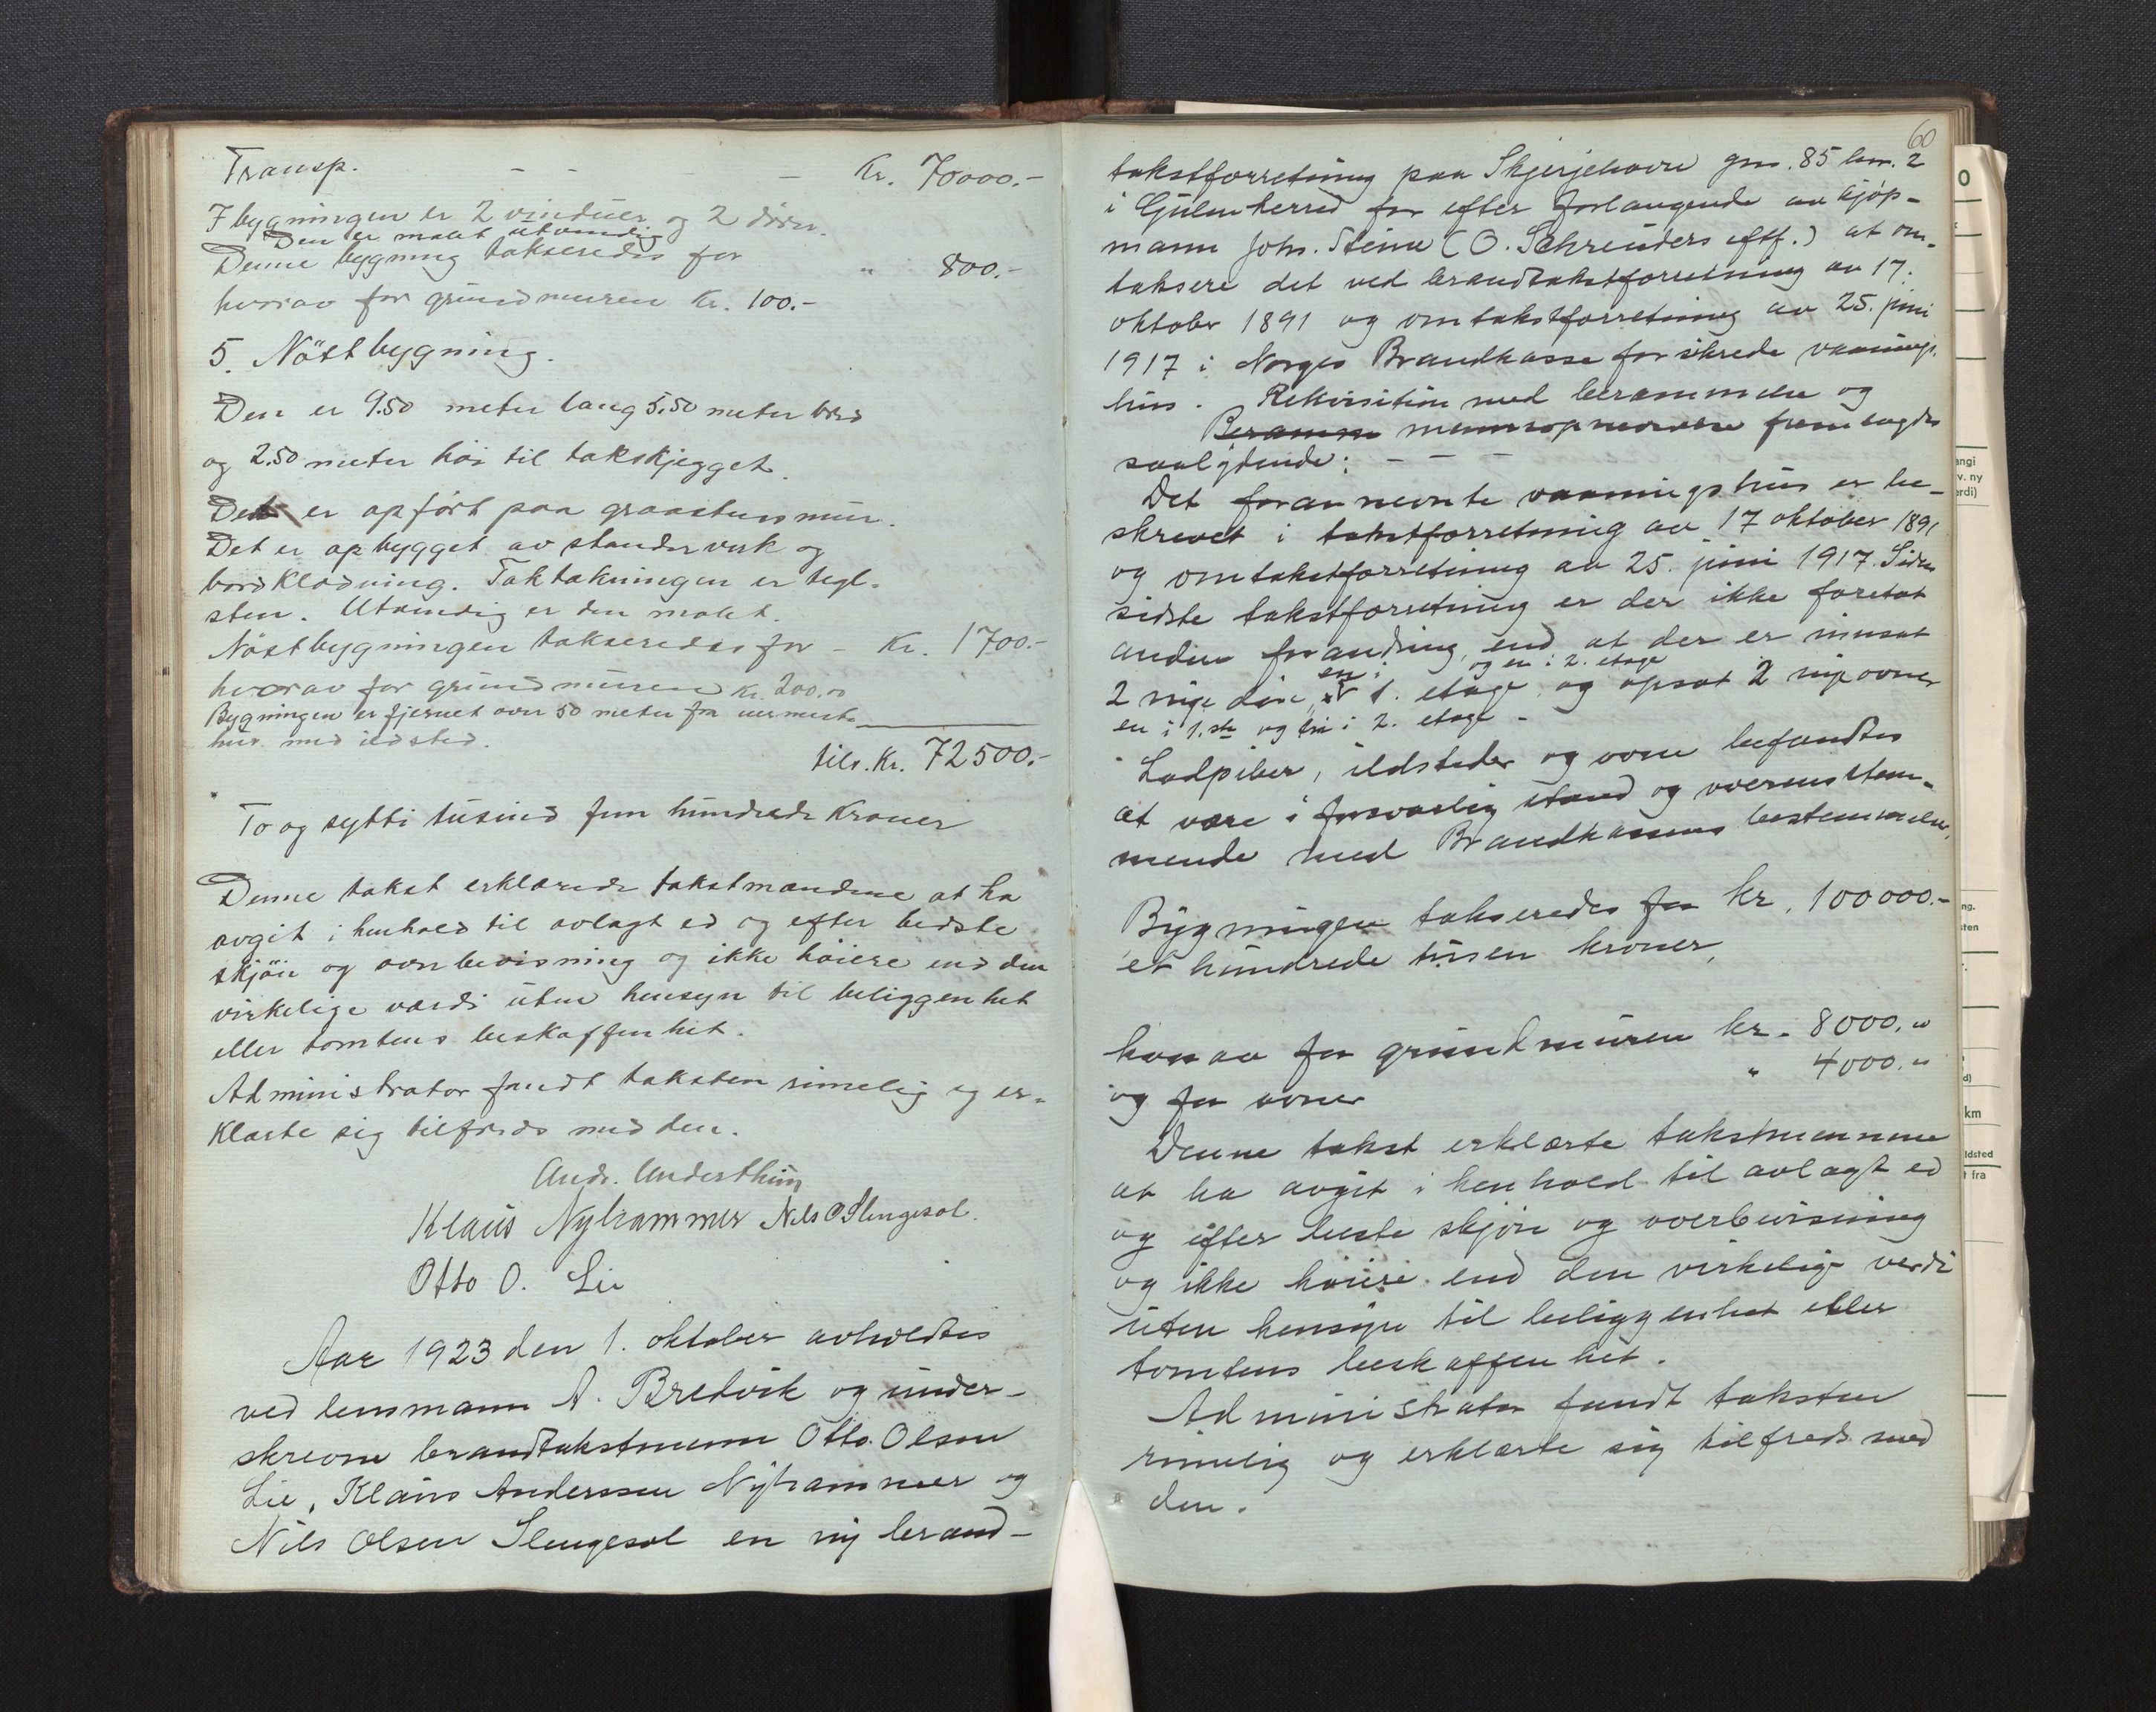 Transp. - - - - Kr. 70000.-
I bygningen er 2 vinduer og 2 dörer.
Den er malet utvendig
Denne bygning takseredes for " 800.-
hvorav for grundmuren Kr. 100.-
5. Nöstbygning.
Den er 9.50 meter lang 5.50 meter bred
og 2.50 meter höi til takskjegget.
Det er opfört paa graastensmur.
Det er opbygget av stenderverk og
bordklædning. Taktækningen er tegl-
sten. Utvendig er den malet.
Nöstbygningen takseredes for - Kr. 1700.-
hvorav for grundmuren Kr. 200.00
Bygningen er fjernet over 50 meter fra nermeste
hus med ildsted.
tils. Kr. 72500.-
To og sytti tusind fem hundrede Kroner
Denne takst erklærede takstmændene at ha
avgit i henhold til avlagt ed og efter bedste
skjön og overbevisning og ikke höiere end den
virkelige værdi uten hensyn til beliggenhet
eller tomtens beskaffenhet.
Administrator fandt taksten rimelig og er-
Klærte sig tilfreds med den.
Andr. Underthun
Klaus Nyhammer Nils O Slengesol.
Otto O. Lie
Aar 1923 den 1. oktober avholdtes
ved lensmann A. Bredvik og under-
skrevne brandtakstmenn Otto Olsen
Lie, Klaus Anderssen Nyhammer og
Nils Olsen Slengesol en ny brand-
60
takstforretning paa Skjerjehavn gnr. 85 bnr. 2
i Gulen herred for efter forlangende av kjöp-
mann Joh. Steine (O. Schreuders eftf.) at om-
taksere det ved brandtakstforretning av 17.
oktober 1891 og omtakstforretning av 25. juni
1917 i Norges Brandkasse forsikrede vaanings-
hus. Rekvisition med berammelse og
Beramm mannsopnevnelse fremlagdes
saalydende: - - -
Det forannevnte vaaningshus er be-
skrevet i takstforretning av 17 oktober 1891
og omtakstforretning av 25. juni 1917. Siden
sidste takstforretning er der ikke foretat
anden forandring, end at der er innsat
en i og en i 2. etage
2 nye döre, 1. etage, og opsat 2 nye ovner
en i 1.ste og en i 2. etage -
Lodpiber, ildsteder og ovne befandtes
at være i forsvarlig stand og overensstem-
mende med Brandkassens bestemmelser.
Bygningen takseredes for kr. 100000.-
et hundrede tusen kroner,
hvorav for grundmuren kr. 8000.00
og for ovner " 4000.00
Denne takst erklærte takstmennene
at ha avgit i henhold til avlagt ed
og efter beste skjön og overbevisning
og ikke höiere end den virkelige verdi
uten hensyn til beliggenhet eller
tomtens beskaffenhet.
Administrator fandt taksten
rimelig og erklærte sig tilfreds med
den.
0
angi
v. ny
erdi)
ng.
sten
d)
km
ldsted
t fra